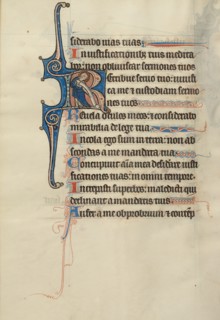 siderabo uias tuas.
In iustificationibus tuis medita
bor: non obliuiscar sermones tuos
Retribue seruo tuo: uiuifi
ca me et custodiam sermo
nes tuos
Reuela oculos meos: et considerabo
mirabilia de lege tua
Incola ego sum in terra: non ab
scondas a me mandata tua.
Concupiuit anima mea desiderare iusti
ficationes tuas: in omni tempore.
Increpasti superbos: maledicti qui
declinant a mandatis tuis
Aufer a me obprobrium et contemp